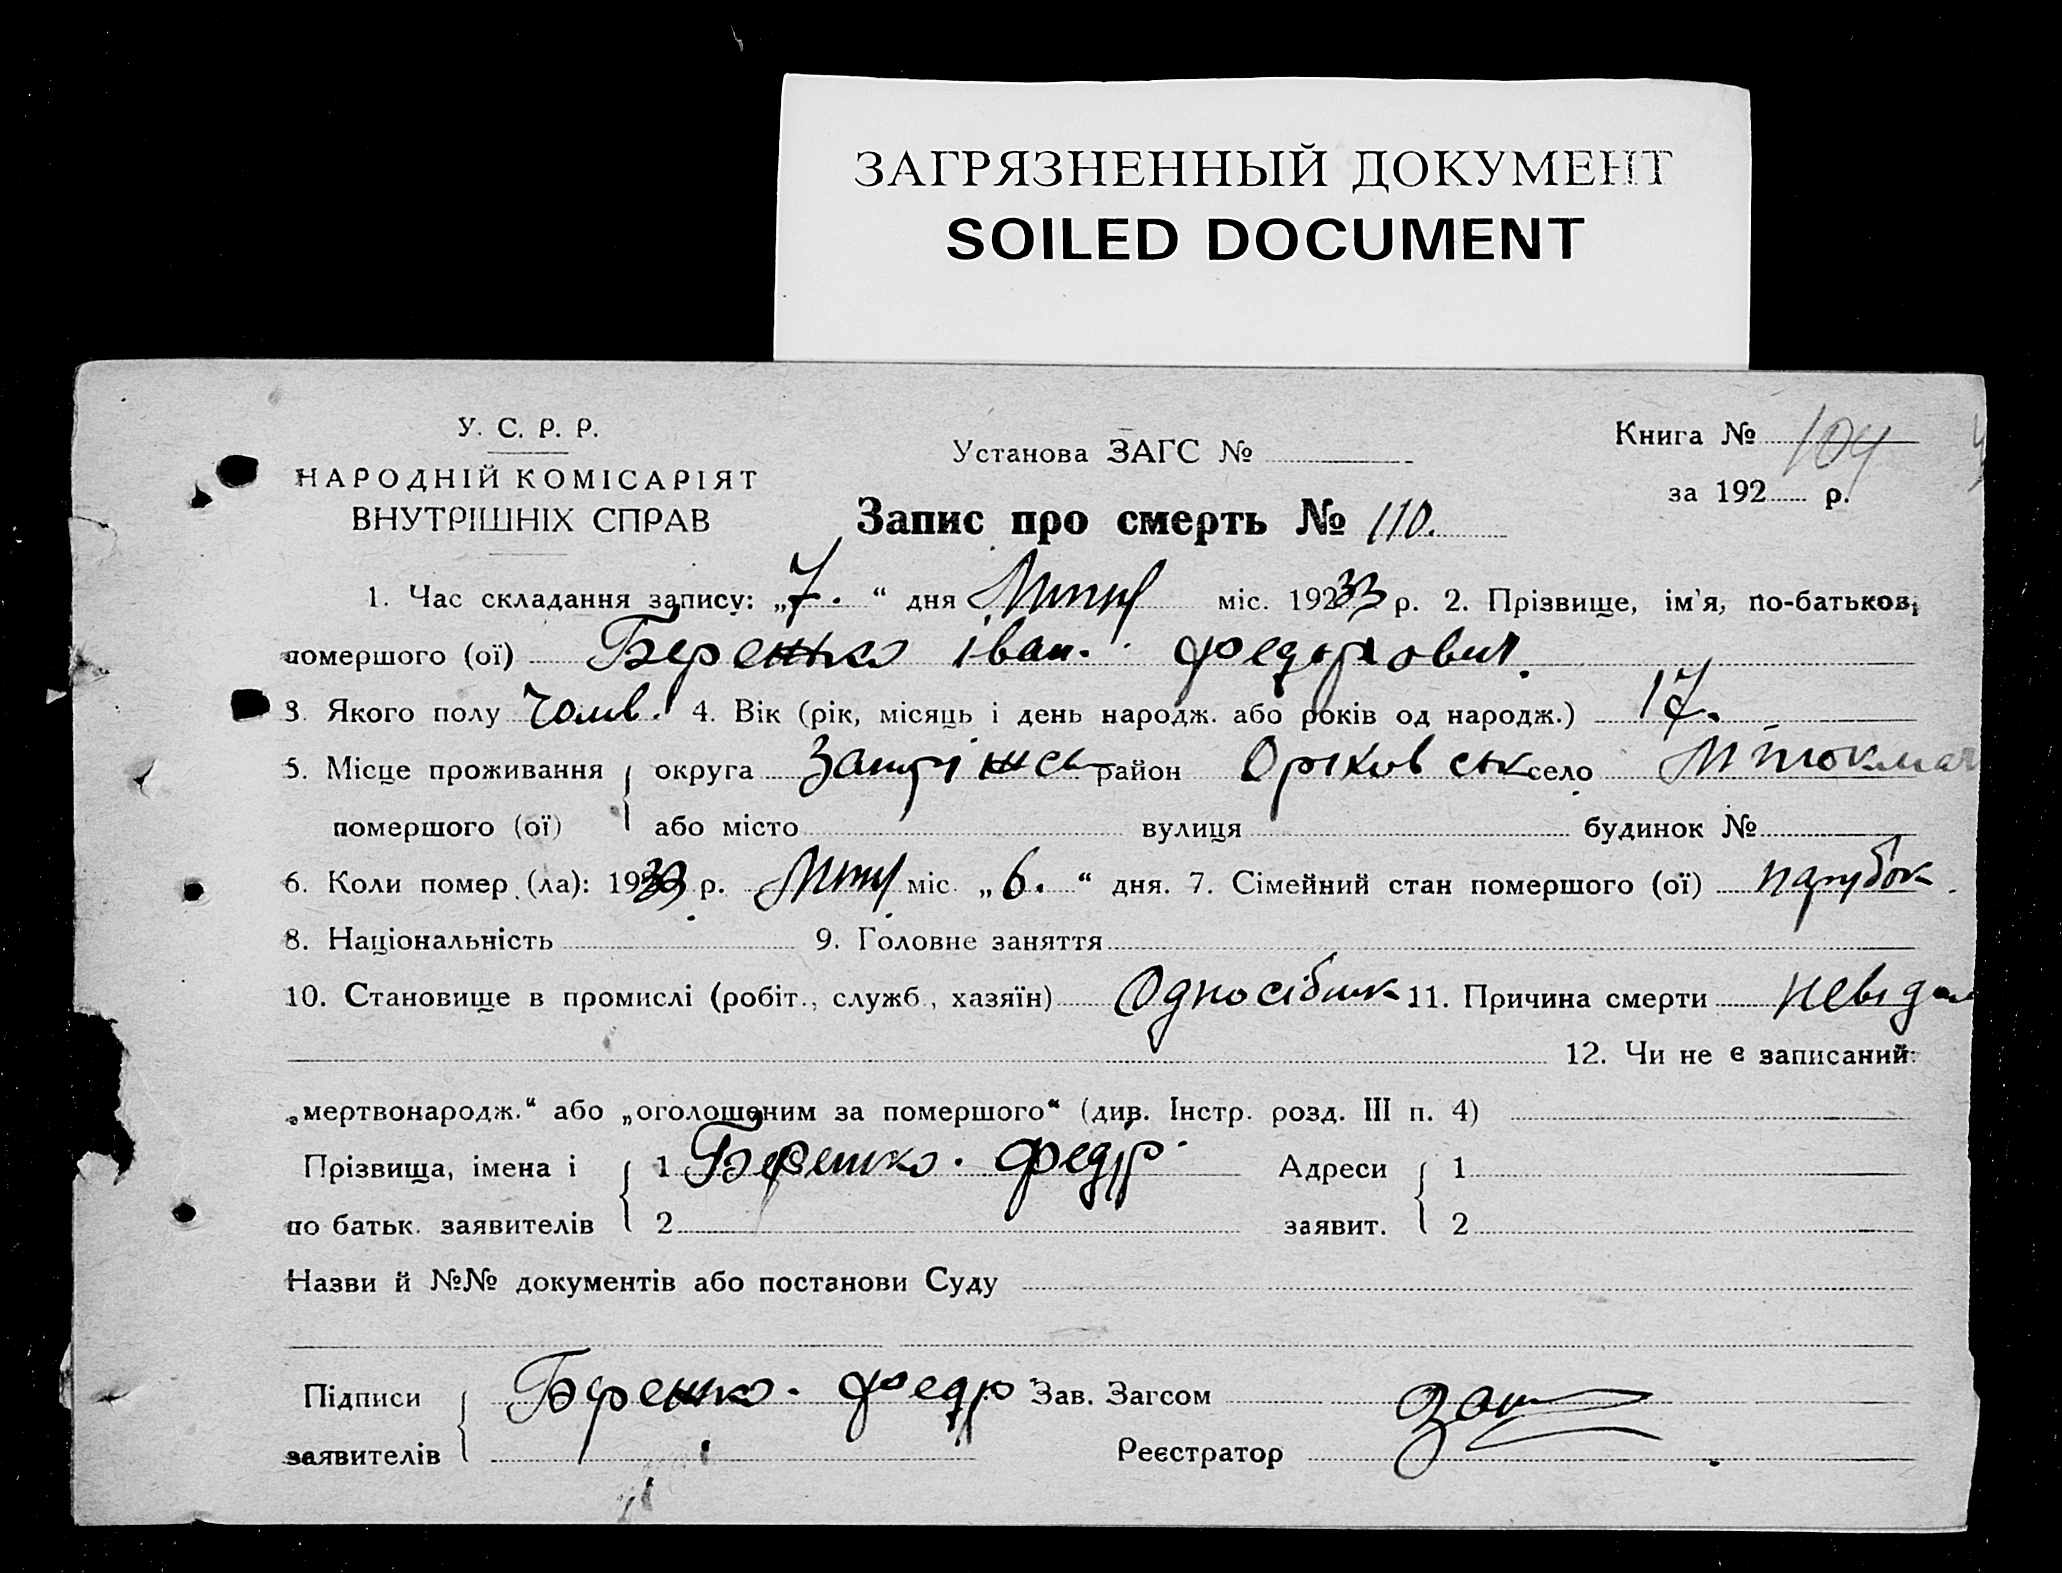 ЗАГРЯЗНЕННЫЙ ДОКУМЕНТ
SOILED DOCUMENT
У. С. Р. Р.
НАРОДНІЙ КОМІСАРІЯТ
ВНУТРІШНІХ СПРАВ
Установа ЗАГС №
Книга № 104
за 192 р.
Запис про смерть № 110.
1. Час складання запису: „7.“ дня міс. 1933 р. 2. Прізвище, ім'я, по-батькові,
помершого (ої) Іван.
3. Якого полу чолив. 4. Вік (рік, місяць і день народж. або років од народж.) 17.
5. Місце проживання округа район Оріховськ село М Токмач
помершого (ої) або місто вулиця будинок №
6. Коли помер (ла): 1933 р. міс. „6.“ дня. 7. Сімейний стан помершого (ої) парубок.
8. Національність 9. Головне заняття
10. Становище в промислі (робіт., служб., хазяїн) Односібник 11. Причина смерти невідом
12. Чи не є записаний:
„мертвонародж.“ або „оголошеним за помершого“ (див. Інстр. розд. III п. 4)
Прізвища, імена і 1 Федір Адреси 1
по батьк. заявителів 2 заявит. 2
Назви й №№ документів або постанови Суду
Підписи Зав. Загсом
заявителів Реєстратор